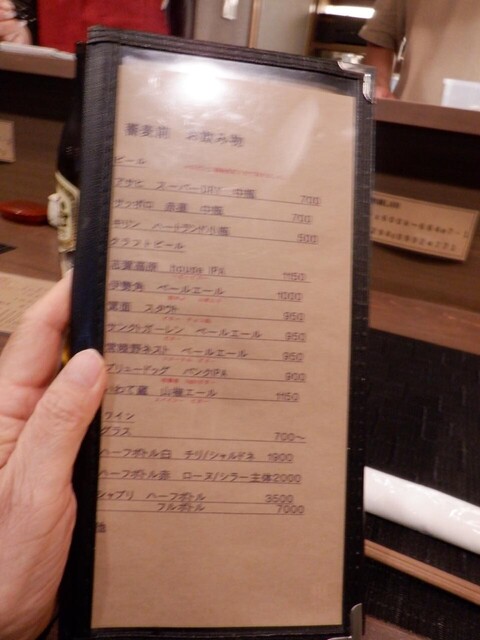 蕎麦前 お飲み物
ビール
アサヒ スーパーDRY 中瓶 700
サッポロ 赤星 中瓶 700
キリン ハートランド小瓶 500
クラフトビール
志賀高原 IPA 1150
伊勢角 ペールエール 1000
箕面 スタウト 950
サンクトガーレン ペールエール 950
常陸野ネスト ペールエール 950
ブリュードッグ パンクIPA 900
いわて蔵 山椒エール 1150
ワイン
グラス 700〜
ハーフボトル白 チリ/シャルドネ 1900
ハーフボトル赤 ローヌ/シラー主体2000
シャブリ ハーフボトル 3500
フルボトル 7000
他